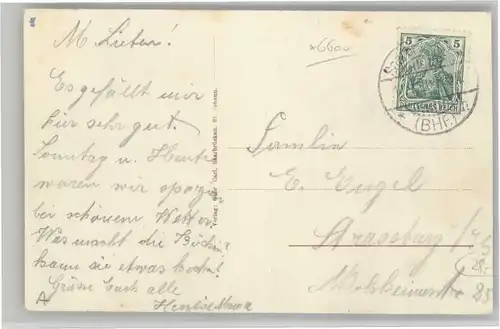 M. Lieben!
Es gefällt mir
hir sehr gut.
Sonntag u. Heute
waren wir spazir
bei schönem Wetter.
Was macht die Köchin?
kann sie etwas kochen?
Grüsse Euch alle
*6600
5 5
DEUTSCHES REICH
(BHF.)
Familie
E. Engel
Strassburg i/
Molsheimerstr
25